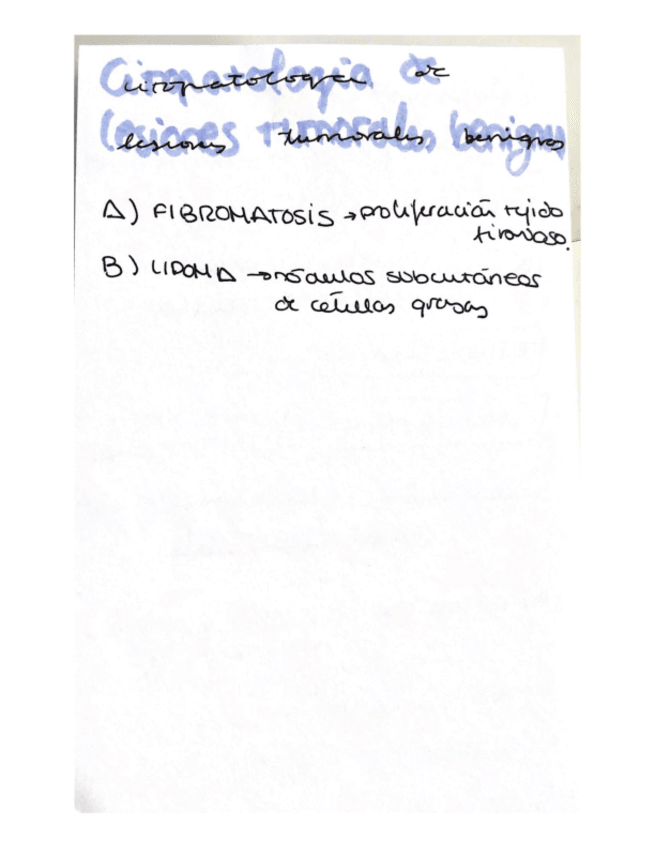 Citopatología de
lesiones tumorales benignas
A) FIBROMATOSIS → proliferación tejido
fibroso.
B) LIPOMA → nódulos subcutáneos
de células grasas